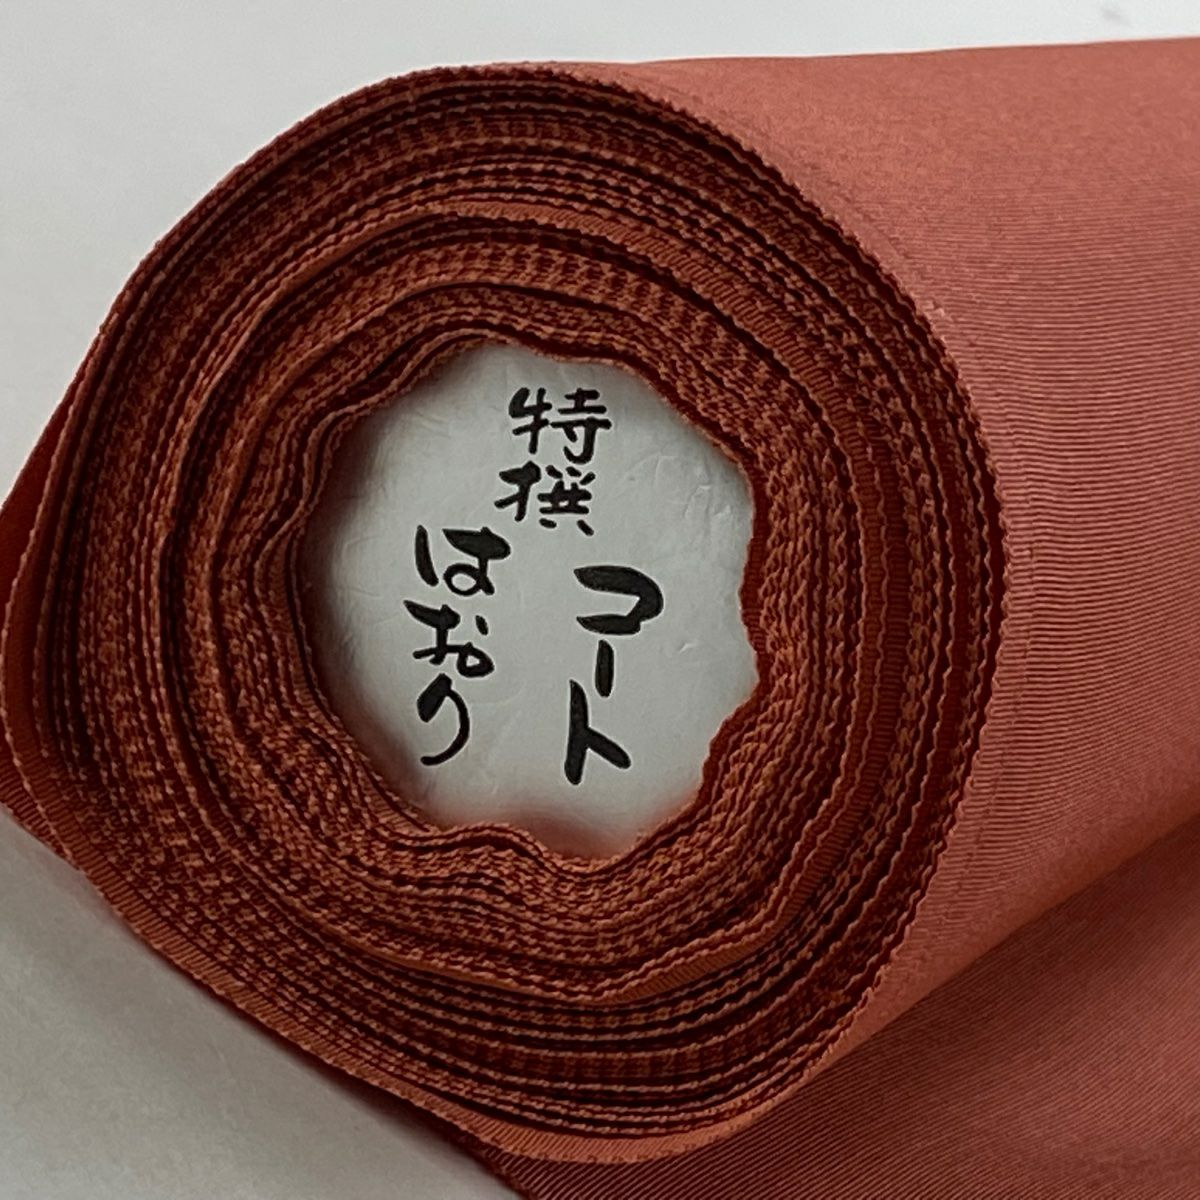 特撰
コート
はおり